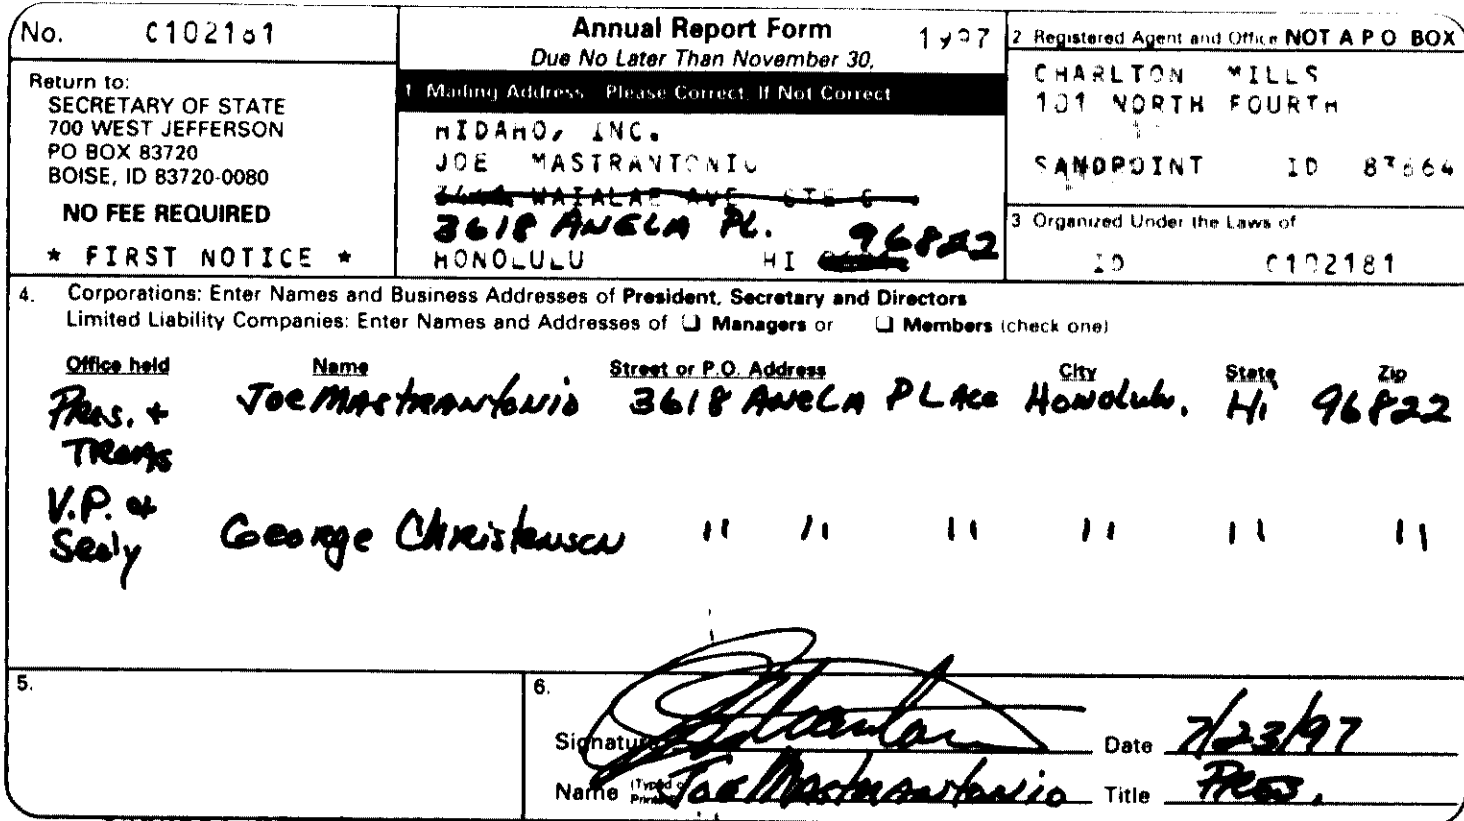 No. C102181
Annual Report Form 1997
Due No Later Than November 30,
Return to:
SECRETARY OF STATE
700 WEST JEFFERSON
PO BOX 83720
BOISE, ID 83720-0080
NO FEE REQUIRED
* FIRST NOTICE *
1 Mailing Address Please Correct, If Not Correct
HIDAHO, INC.
JOE MASTRANTONIO
WAIALAE AVE STE
3618 ANELA PL.
HONOLULU HI 96822
2 Registered Agent and Office NOT A P O BOX
CHARLTON MILLS
101 NORTH FOURTH
SANDPOINT ID 83664
3 Organized Under the Laws of
ID C102181
4. Corporations: Enter Names and Business Addresses of President, Secretary and Directors
Limited Liability Companies: Enter Names and Addresses of ❑ Managers or ❑ Members (check one)
Office held Name Street or P.O. Address City State Zip
Pres. + Joe Mastrantonio 3618 Anela Place Honolulu, Hi 96822
Treas
V.P. +
Secty George Christenson " " " " " "
5.
6.
Signature Date 7/23/97
Name (Typed or Printed) Joe Mastrantonio Title Pres.